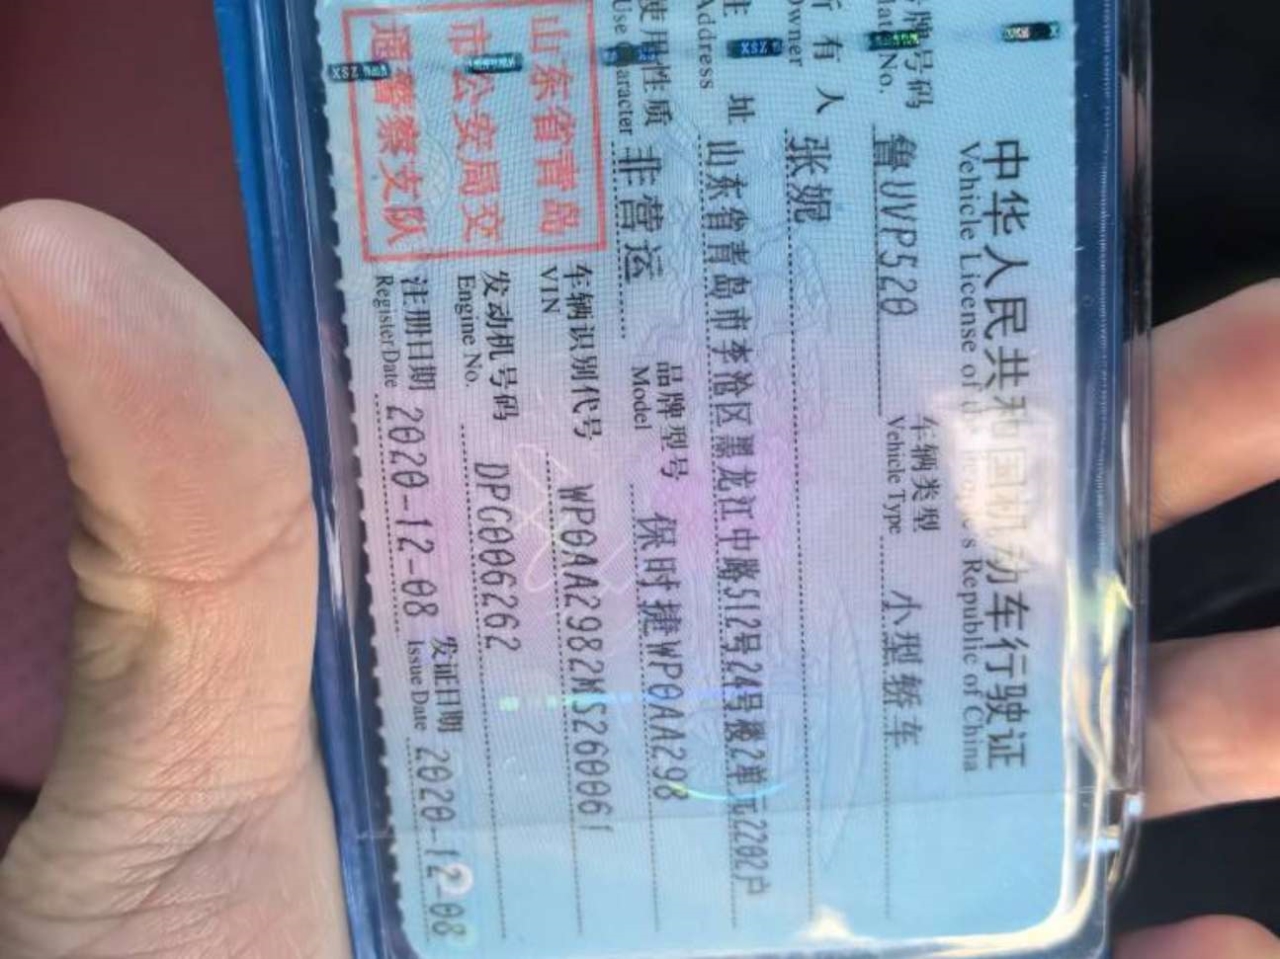 中华人民共和国机动车行驶证
Vehicle License of the People's Republic of China
号牌号码 鲁UVP520 车辆类型 小型轿车
Plate No. Vehicle Type
所有人 张妮
Owner
住址 山东省青岛市李沧区黑龙江中路512号24号楼2单元2202户
Address
使用性质 非营运 品牌型号 保时捷WP0AA298
Use Character Model
山东省青岛
市公安局交
通警察支队
车辆识别代号 WP0AA2982MS260061
VIN
发动机号码 DPG006262
Engine No.
注册日期 2020-12-08 发证日期 2020-12-08
Register Date Issue Date